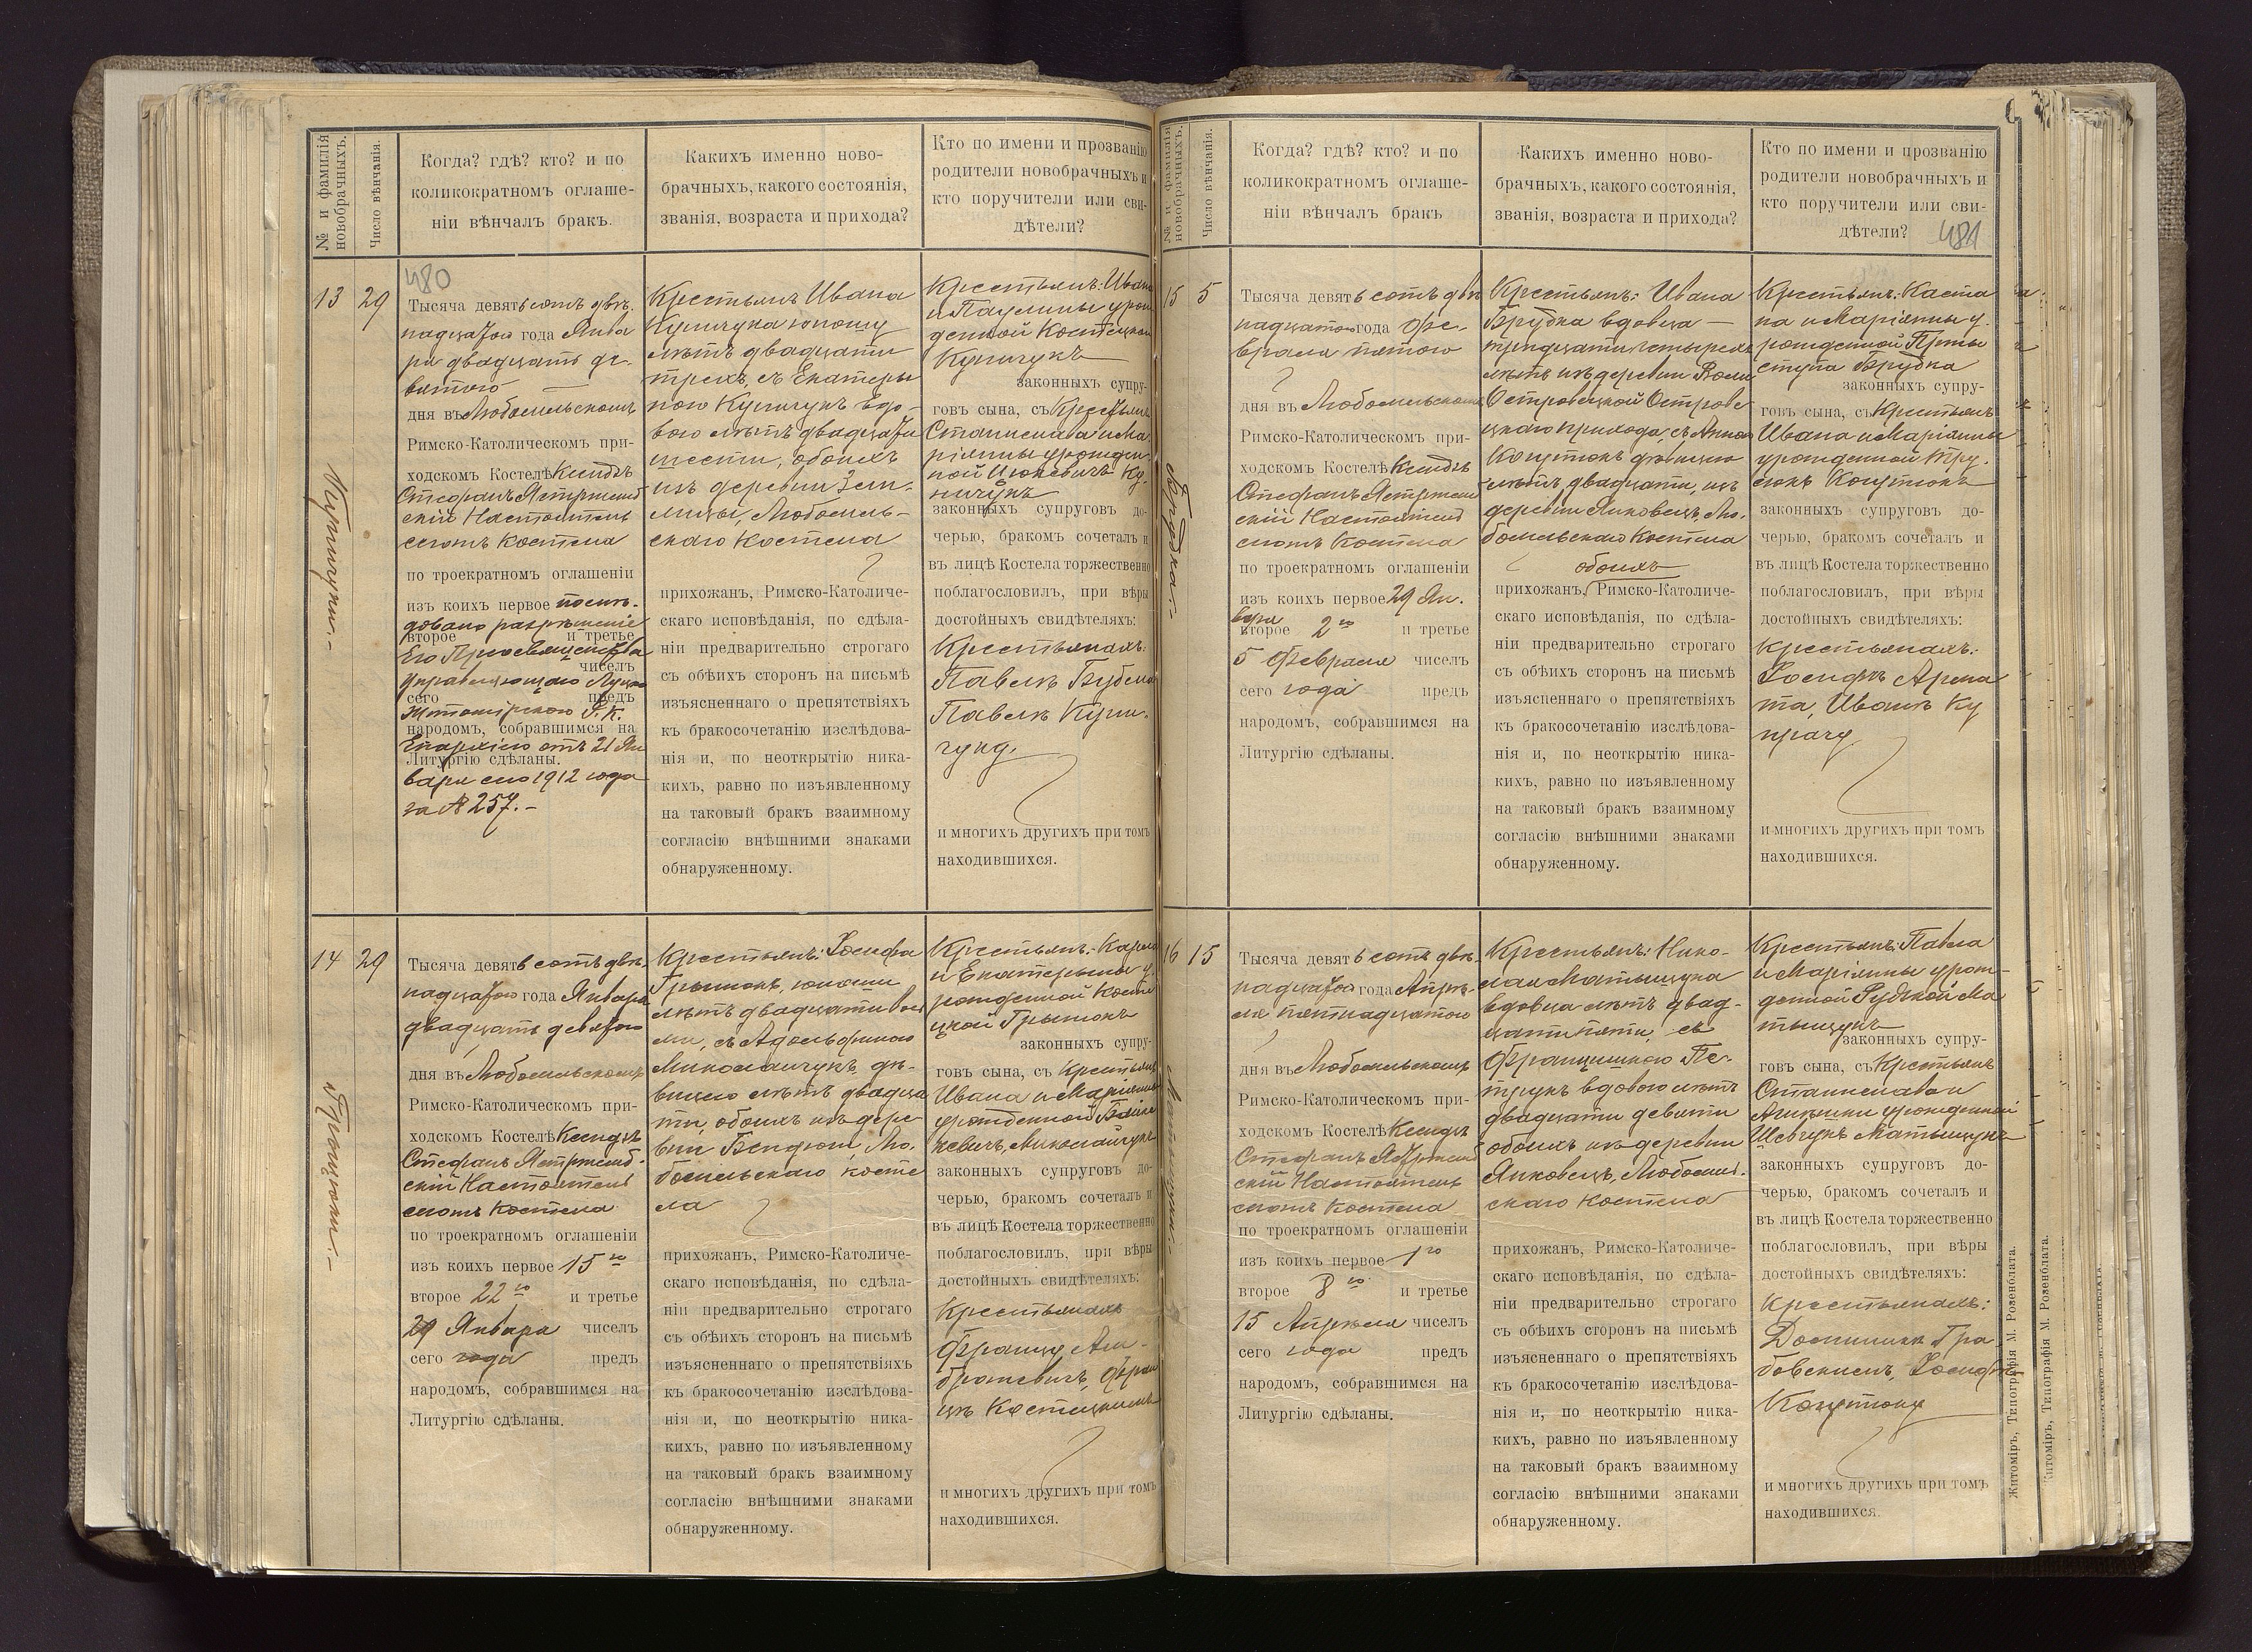 № и фамилія новобрачныхъ.
Число вѣнчанія.
Когда? гдѣ? кто? и по
коликократномъ оглаше-
ніи вѣнчалъ бракъ.
Какихъ именно ново-
брачныхъ, какого состоянія,
званія, возраста и прихода?
Кто по имени и прозванію
родители новобрачныхъ и
кто поручители или сви-
дѣтели?
480
13
29
Тысяча девятьсотъ двѣ-
надцатого года Янва
ря двадцать де-
вятого
дня въ Любомльскомъ
Римско-Католическомъ при-
ходскомъ Костелѣ Ксендзъ
Стефанъ Ястржемб
скій Настоятель
сего Костела
по троекратномъ оглашеніи
изъ коихъ первое послѣ-
довало разрѣшеніе
второе и третье
Его Преосвященства
чиселъ
Управляющаго Луцко
сего предъ
Житомірскою Р. К.
народомъ, собравшимся на
Епархіею отъ 21 Ян
Литургію сдѣланы.
варя сего 1912 года
за № 257.-
Крестьянъ Ивана
Куничука юношу
лѣтъ двадцати
трехъ, съ Екатеры
ною Куничукъ вдо-
вою лѣтъ двадцати
шести, обоихъ
изъ деревни Зем-
лицы, Любомль-
скаго Костела
прихожанъ, Римско-Католиче-
скаго исповѣданія, по сдѣла-
ніи предварительно строгаго
съ обѣихъ сторонъ на письмѣ
изъясненнаго о препятствіяхъ
къ бракосочетанію изслѣдова-
нія и, по неоткрытію ника-
кихъ, равно по изъявленному
на таковый бракъ взаимному
согласію внѣшними знаками
обнаруженному.
Крестьянъ: Ивана
и Паулины урож
денной Костецкой
Куничукъ
законныхъ супру-
говъ сына, съ Крестьянъ
Станислава и Ма
ріянны урожден-
ной Ку-
ничукъ
законныхъ супруговъ до-
черью, бракомъ сочеталъ и
въ лицѣ Костела торжественно
поблагословилъ, при вѣры
достойныхъ свидѣтеляхъ:
Крестьянахъ:
Павелъ
Павелъ Куни-
чукъ.
и многихъ другихъ при томъ
находившихся.
14
29
Тысяча девятьсотъ двѣ-
надцатого года Января
двадцать девятого
дня въ Любомльскомъ
Римско-Католическомъ при-
ходскомъ Костелѣ Ксендзъ
Стефанъ Ястржемб-
скій Настоятель
сего Костела
по троекратномъ оглашеніи
изъ коихъ первое 15го
второе 22го и третье
29 Января чиселъ
сего года предъ
народомъ, собравшимся на
Литургію сдѣланы.
Крестьянъ: Іосифа
юношу
лѣтъ двадцати вось
ми, съ Адольфиною
Миколайчукъ, дѣ-
вицею лѣтъ двадца
ти, обоихъ изъ дере
вни Бендюги, Лю-
бомльскаго косте
ла
прихожанъ, Римско-Католиче-
скаго исповѣданія, по сдѣла-
ніи предварительно строгаго
съ обѣихъ сторонъ на письмѣ
изъясненнаго о препятствіяхъ
къ бракосочетанію изслѣдова-
нія и, по неоткрытію ника-
кихъ, равно по изъявленному
на таковый бракъ взаимному
согласію внѣшними знаками
обнаруженному.
Крестьянъ: Карла
и Екатерины у-
рожденной Косте
цкой
законныхъ супру-
говъ сына, съ Крестьянъ
Ивана и Маріянны
урожденной
Миколайчукъ
законныхъ супруговъ до-
черью, бракомъ сочеталъ и
въ лицѣ Костела торжественно
поблагословилъ, при вѣры
достойныхъ свидѣтеляхъ:
Крестьянахъ
Францъ Ам-
брожевичъ, Фран
цъ Костецкимъ
и многихъ другихъ при томъ
находившихся.
№ и фамилія новобрачныхъ.
Число вѣнчанія.
Когда? гдѣ? кто? и по
коликократномъ оглаше-
ніи вѣнчалъ бракъ
Какихъ именно ново-
брачныхъ, какого состоянія,
званія, возраста и прихода?
Кто по имени и прозванію
родители новобрачныхъ и
кто поручители или сви-
дѣтели?
481
15
5
Тысяча девятьсотъ двѣ
надцатого года Фе-
враля пятого
дня въ Любомльскомъ
Римско-Католическомъ при-
ходскомъ Костелѣ Ксендзъ
Стефанъ Ястржемб
скій Настоятель
сего Костела
по троекратномъ оглашеніи
изъ коихъ первое 29 Ян-
варя
второе 2го и третье
5 Февраля чиселъ
сего года предъ
народомъ, собравшимся на
Литургію сдѣланы.
Крестьянъ: Ивана
Брудка вдовца —
тридцати четырехъ
лѣтъ изъ деревни
Островецкой Острове
цкаго прихода, съ Анною
Коцутюкъ дѣвицею
лѣтъ двадцати, изъ
деревни Янковецъ, Лю-
бомльскаго Костела
обоихъ
прихожанъ, Римско-Католиче-
скаго исповѣданія, по сдѣла-
ніи предварительно строгаго
съ обѣихъ сторонъ на письмѣ
изъясненнаго о препятствіяхъ
къ бракосочетанію изслѣдова-
нія и, по неоткрытію ника-
кихъ, равно по изъявленному
на таковый бракъ взаимному
согласію внѣшними знаками
обнаруженному.
Крестьянъ: Каета
на и Маріянны у-
рожденной Присту
ступа Брудка
законныхъ супру-
говъ сына, съ Крестьянъ
Ивана и Маріянны
урожденной
Коцутюкъ
законныхъ супруговъ до-
черью, бракомъ сочеталъ и
въ лицѣ Костела торжественно
поблагословилъ, при вѣры
достойныхъ свидѣтеляхъ:
Крестьянахъ:
Іосифъ
Иванъ Ку
и многихъ другихъ при томъ
находившихся.
16
15
Тысяча девятьсотъ двѣ-
надцатого года Апрѣ-
ля пятнадцатого
дня въ Любомльскомъ
Римско-Католическомъ при-
ходскомъ Костелѣ Ксендзъ
Стефанъ Ястржемб
скій Настоятель
сего Костела
по троекратномъ оглашеніи
изъ коихъ первое 1го
второе 8го и третье
15 Апрѣля чиселъ
сего года предъ
народомъ, собравшимся на
Литургію сдѣланы.
Крестьянъ: Нико-
лая Матыщука
вдовца лѣтъ двад-
цати пяти, съ
Францишкою Пе-
трукъ вдовою лѣтъ
двадцати девяти
обоихъ изъ деревни
Янковецъ, Любомль-
скаго Костела
прихожанъ, Римско-Католиче-
скаго исповѣданія, по сдѣла-
ніи предварительно строгаго
съ обѣихъ сторонъ на письмѣ
изъясненнаго о препятствіяхъ
къ бракосочетанію изслѣдова-
нія и, по неоткрытію ника-
кихъ, равно по изъявленному
на таковый бракъ взаимному
согласію внѣшними знаками
обнаруженному.
Крестьянъ: Павла
и Маріянны урож-
денной Рудской Ма
тыщукъ
законныхъ супру-
говъ сына, съ Крестьянъ
Станислава и
урожденной
Шевчукъ Матыщукъ
законныхъ супруговъ до-
черью, бракомъ сочеталъ и
въ лицѣ Костела торжественно
поблагословилъ, при вѣры
достойныхъ свидѣтеляхъ:
Крестьянахъ:
Доминикъ Гра-
бовскимъ, Іосифъ
Коцутюкъ
и многихъ другихъ при томъ
находившихся.
Житоміръ, Типографія М. Розенблата.
Житоміръ, Типографія М. Розенблата.